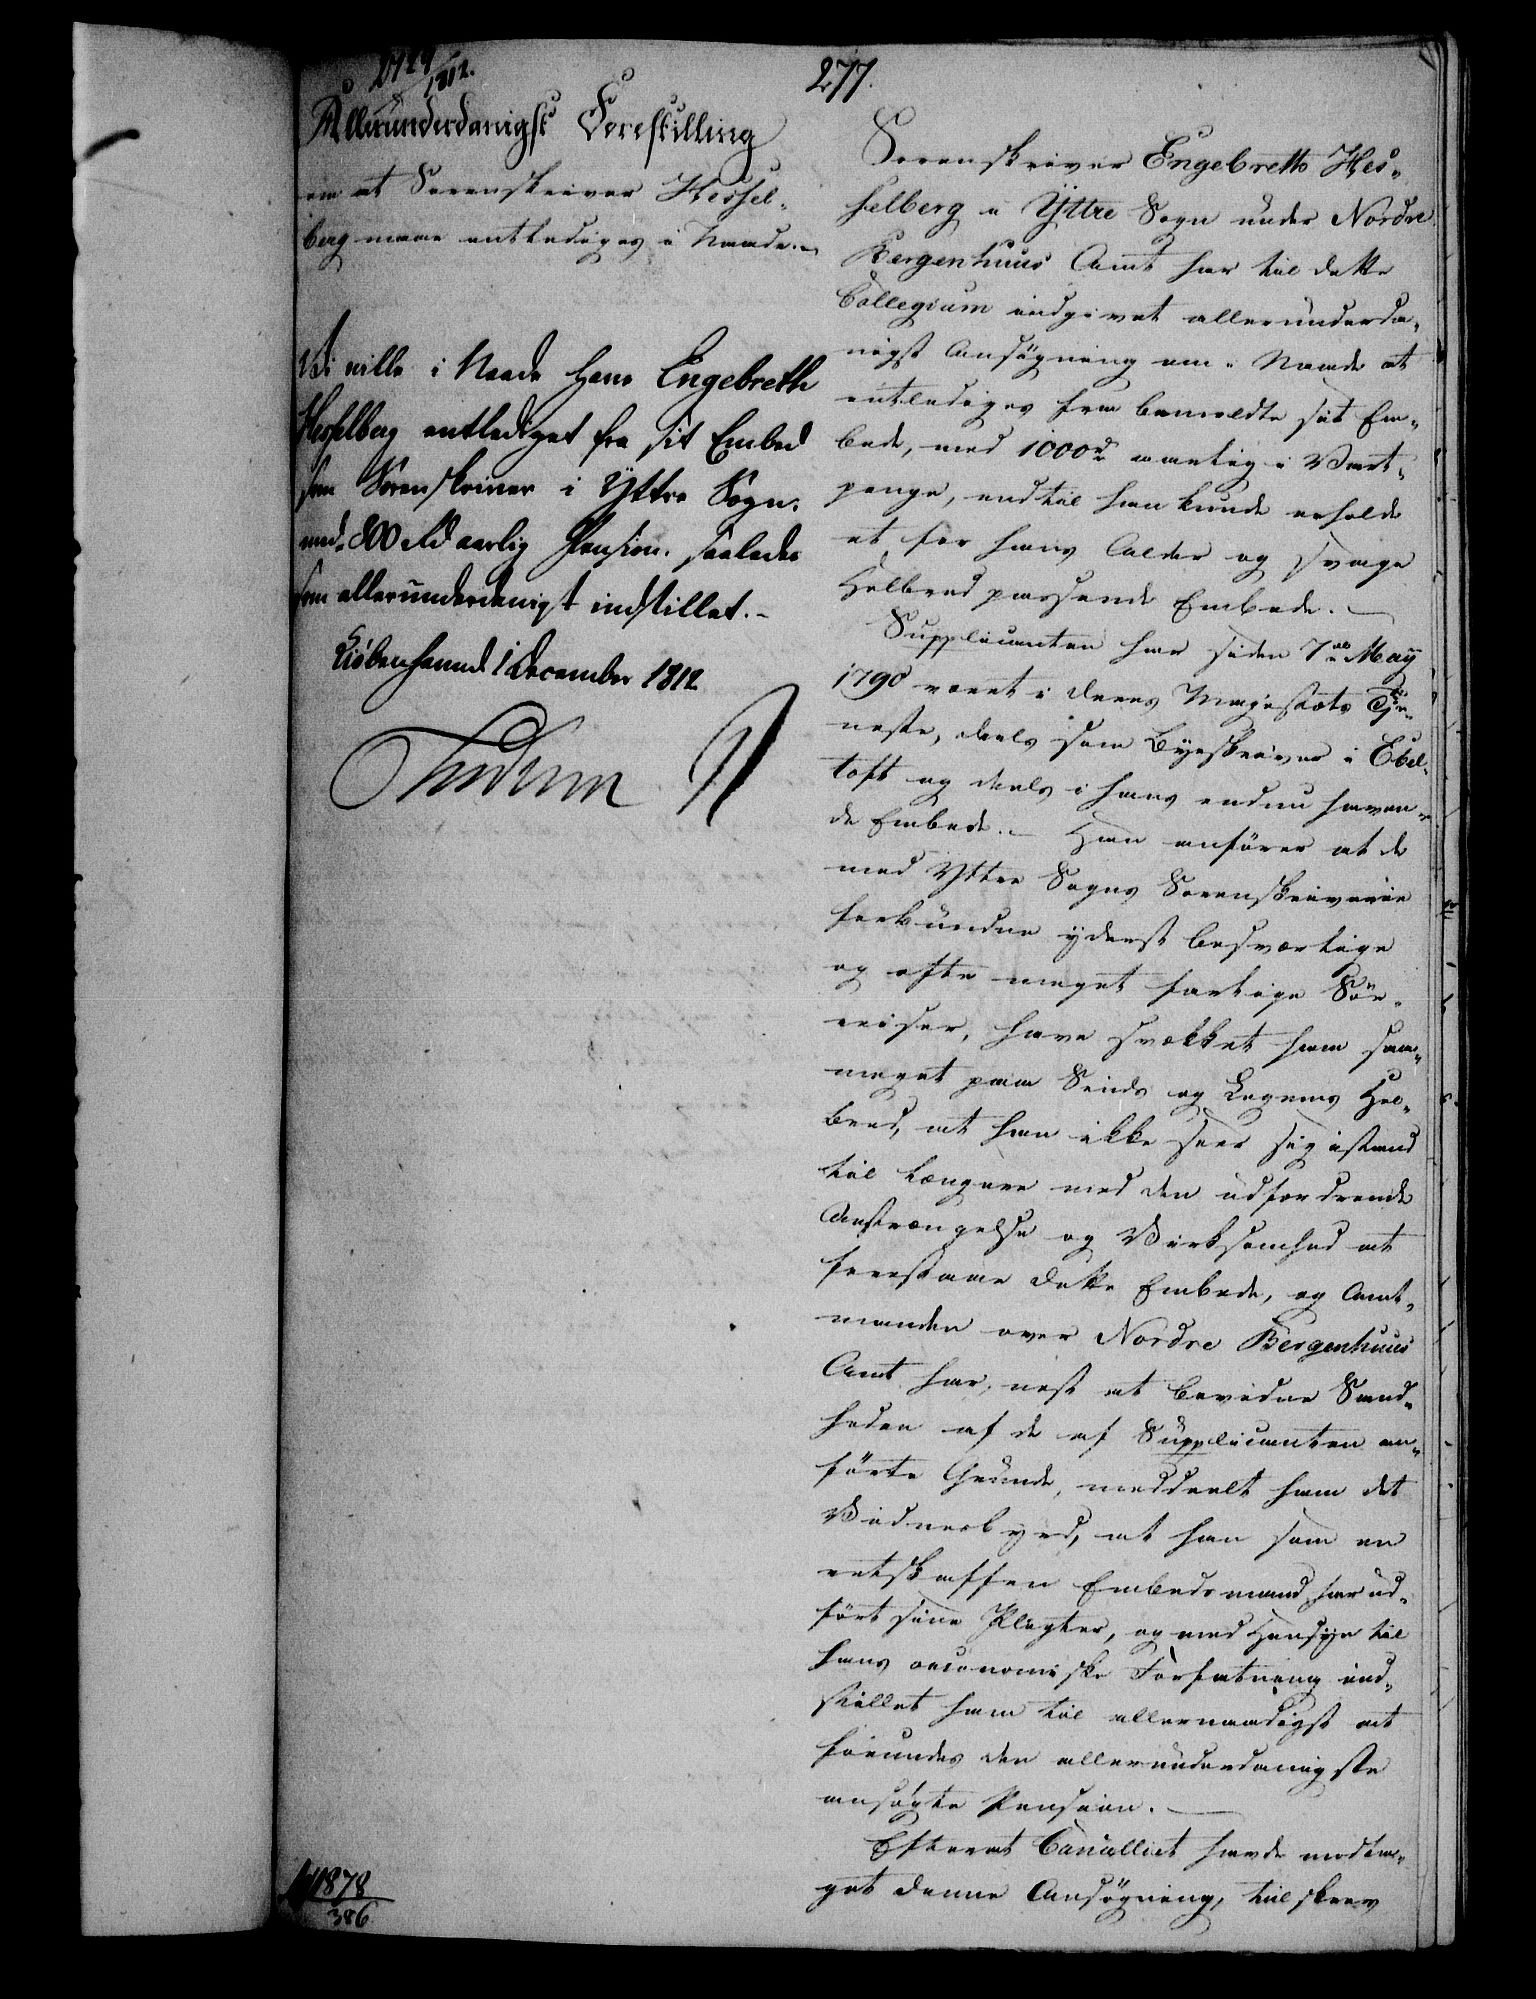 277.
1812.
Allerunderdanigst Forestilling
om at Sorenskriver Hessel-
berg maae entlediges i Naade.
Vi ville i Naade have Engebreth
Hesselberg entlediget fra sit Embed
som Sorenskriver i Yttre Sogn,
med 800 rd aarlig Pension, saaledes
som allerunderdanigst indstillet.-
Kiöbenhavnd 1 December 1812
Frederik R
1878
386
Sorenskriver Engebretts Hes-
selberg i Yttre Sogn under Nordre
Bergenhuus Amt har til dette
Collegium indgivet allerunderda-
nigst Ansögning om i Naade at
entlediges fra bemeldte sit Em-
bede, med 1000 rd aarlig i Vart-
penge, indtil han kunde erholde
et for hans Alder og svage
Helbred passende Embede.
Supplicanten har siden 7de May
1790 været i Deres Majestæts Tje-
neste, deels som Byeskriver i Ebel-
toft og deels i hans endnu haven-
de Embede. - Han anförer at de
med Yttre Sogns Sorenskriverie
forbundne yderst besværlige
og ofte meget farlige Söe-
reiser, have svækket ham saa
meget paa Sinds og Legems Hel-
bred, at han ikke seer sig istand
til længere med den udfordrende
Anstrængelse og Virksomhed at
forestaae dette Embede, og Amt-
manden over Nordre Bergenhuus
Amt har, nest at bevidne Sand-
heden af de af Supplicanten an-
förte Grunde, meddeelt ham det
Vidnesbyrd, at han som en
retskaffen Embedsmand har ud-
fört sine Pligter, og med Hensyn til
hans oeconomiske Forfatning ind-
stillet ham til allernaadigst at
forundes den allerunderdanigste
ansögte Pension.
Efterat Cancelliet havde modta-
get denne Ansögning, tilskrev